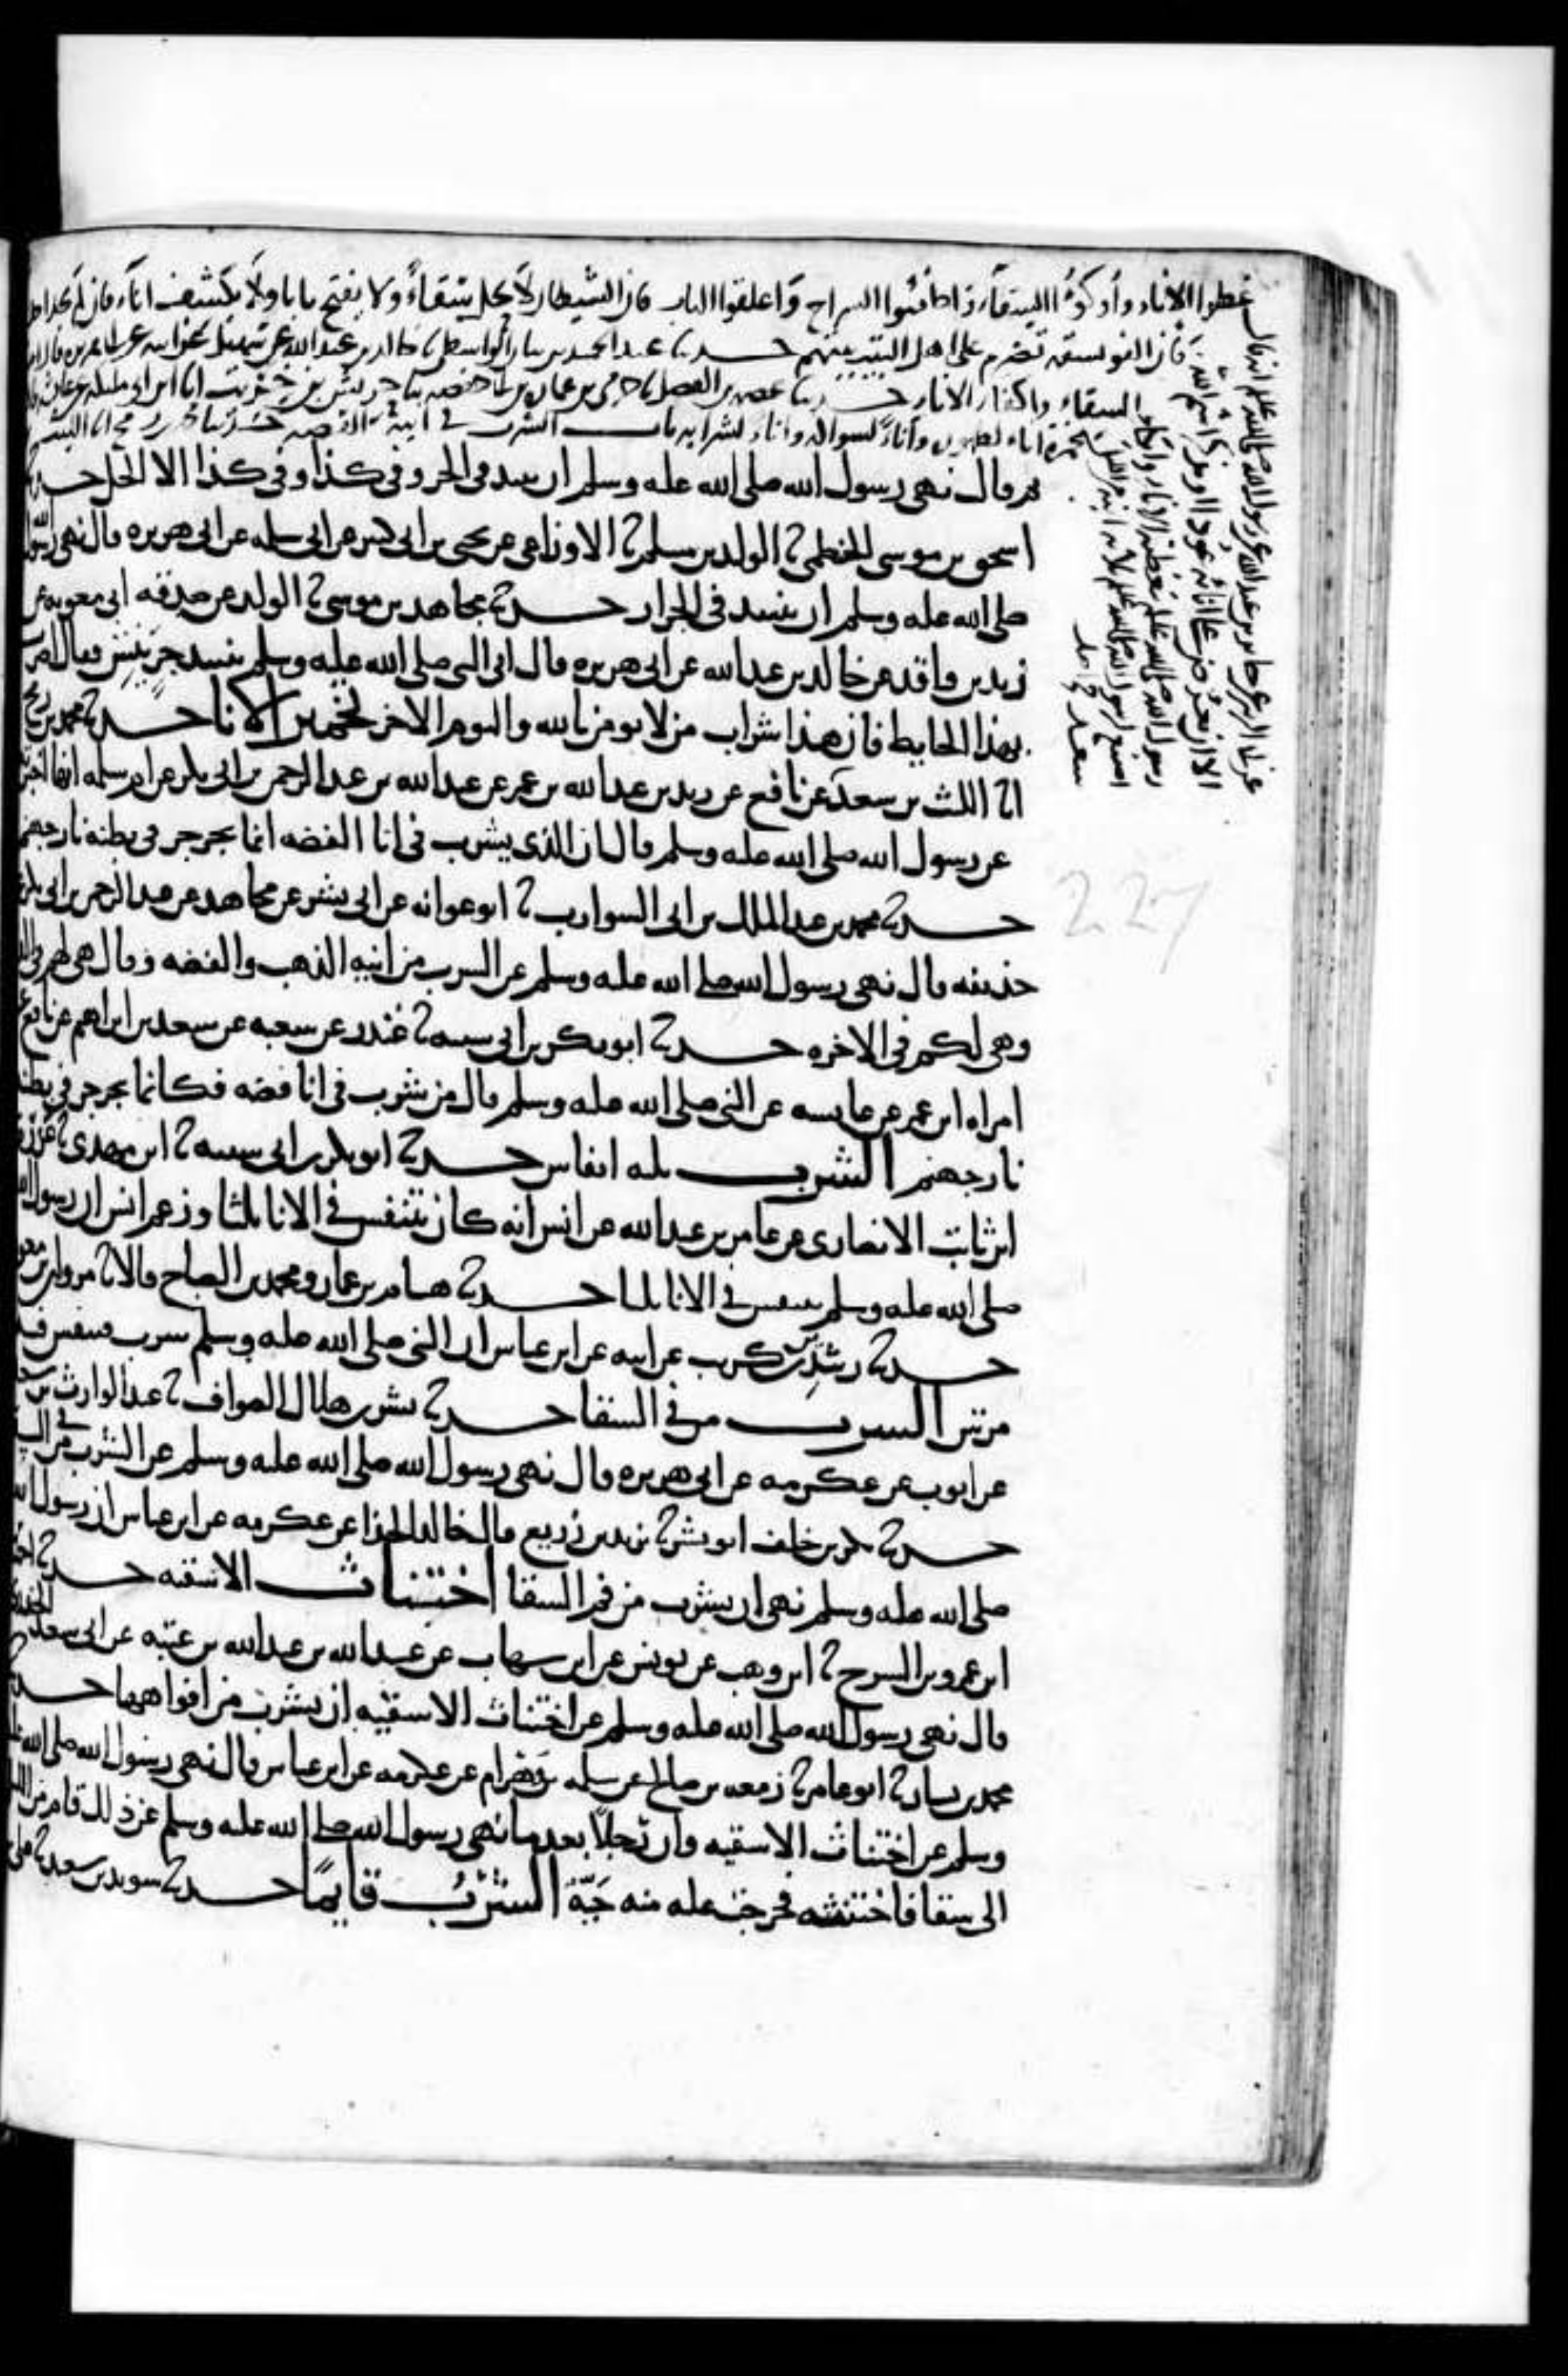 غطوا الاناء وأوكوا السقاء واطفئوا السراج واغلقوا الباب فان الشيطان لا يحل سقاءً ولا يفتح بابا ولا يكشف اناء فان لم يجد احد
الا ان يعرض على انائه عودا او يذكر اسم الله
فان الفويسقة تضرم على اهل البيت بيتهم حدثنا عبد الحميد بن بيان الواسطي نا خالد بن عبد الله عن سهيل عن ابيه عن ابي هريرة قال
رسول الله صلى الله عليه بتغطية الاناء وايكاء
السقاء واكفاء الاناء حدثنا عصمة بن الفضل نا حرمي بن عمارة بن ابي حفصة نا حريش بن خريت انا ابن ابي مليكة عن عائشة
اصنع لرسول الله صلى الله عليه ثلاثة انية من الليل
مخمرة اناء لطهوره واناء لسواكه واناء لشرابه باب الشرب في انية الفضة حدثنا محمد بن رمح انا الليث
بن سعد
عن ابي الزبير عن جابر بن عبد الله عن رسول الله صلى الله عليه انه قال
قال نهى رسول الله صلى الله عليه وسلم ان ينبذ في الجر وفي كذا وفي كذا الا الخل حدثنا
اسحق بن موسى الخطمي نا الوليد بن مسلم نا الاوزاعي عن يحيى بن ابي كثير عن ابي سلمه عن ابي هريره قال نهى رسول الله
صلى الله عليه وسلم ان ينبذ في الجرار حدثنا مجاهد بن موسى نا الوليد عن صدقه ابي معويه عن
زيد بن واقد عن خالد بن عبد الله عن ابي هريره قال اتي النبي صلى الله عليه وسلم بنبيذ جر ينش فقال اضرب
بهذا الحايط فان هذا شراب من لا يومن بالله واليوم الاخر تخمير الانا حدثنا محمد بن رمح
انا الليث بن سعد عن نافع عن زيد بن عبد الله بن عمر عن عبد الله بن عبد الرحمن بن ابي بكر عن ام سلمه انها اخبرته
عن رسول الله صلى الله عليه وسلم قال ان الذي يشرب في انا الفضه انما يجرجر في بطنه نار جهنم
حدثنا محمد بن عبد الملك بن ابي الشوارب نا ابو عوانه عن ابي بشر عن مجاهد عن عبد الرحمن بن ابي ليلى
حذيفه قال نهى رسول الله صلى الله عليه وسلم عن الشرب من انيه الذهب والفضه وقال هي لهم في الدنيا
وهي لكم في الاخره حدثنا ابو بكر بن ابي شيبه نا غندر عن شعبه عن سعد بن ابراهيم عن نافع عن
امراه ابن عمر عن عايشه عن النبي صلى الله عليه وسلم قال من شرب في انا فضه فكانما يجرجر في بطنه
نار جهنم الشرب بثلثه انفاس حدثنا ابو بكر بن ابي شيبه نا ابن مهدي نا عزره
ابن ثابت الانصاري عن ثمامه بن عبد الله عن انس انه كان يتنفس في الانا ثلثا وزعم انس ان رسول الله
صلى الله عليه وسلم يتنفس في الانا ثلثا حدثنا هشام بن عمار ومحمد بن الصباح قالا نا مروان بن معويه
حدثنا رشدين بن كريب عن ابيه عن ابن عباس ان النبي صلى الله عليه وسلم شرب فتنفس فيه
مرتين الشرب من في السقا حدثنا بشر بن هلال الصواف نا عبد الوارث بن سعيد
عن ايوب عن عكرمه عن ابي هريره قال نهى رسول الله صلى الله عليه وسلم عن الشرب من في السقا
حدثنا بكر بن خلف ابو بشر نا يزيد بن زريع قال خالد الحذا عن عكرمه عن ابن عباس ان رسول الله
صلى الله عليه وسلم نهى ان يشرب من فم السقا اختناث الاسقيه حدثنا احمد
ابن عمرو بن السرح نا ابن وهب عن يونس عن ابن شهاب عن عبيد الله بن عبد الله بن عتبه عن ابي سعيد الخدري
قال نهى رسول الله صلى الله عليه وسلم عن اختناث الاسقيه ان يشرب من افواهها حدثنا
محمد بن بشار نا ابو عامر نا زمعه بن صالح عن سلمه بن وهرام عن عكرمه عن ابن عباس قال نهى رسول الله صلى الله عليه
وسلم عن اختناث الاسقيه وان رجلا بعد ما نهى رسول الله صلى الله عليه وسلم عن ذلك قام من الليل
الى سقا فاختنثه فخرجت عليه منه حية الشرب قايما حدثنا سويد بن سعيد نا علي
227